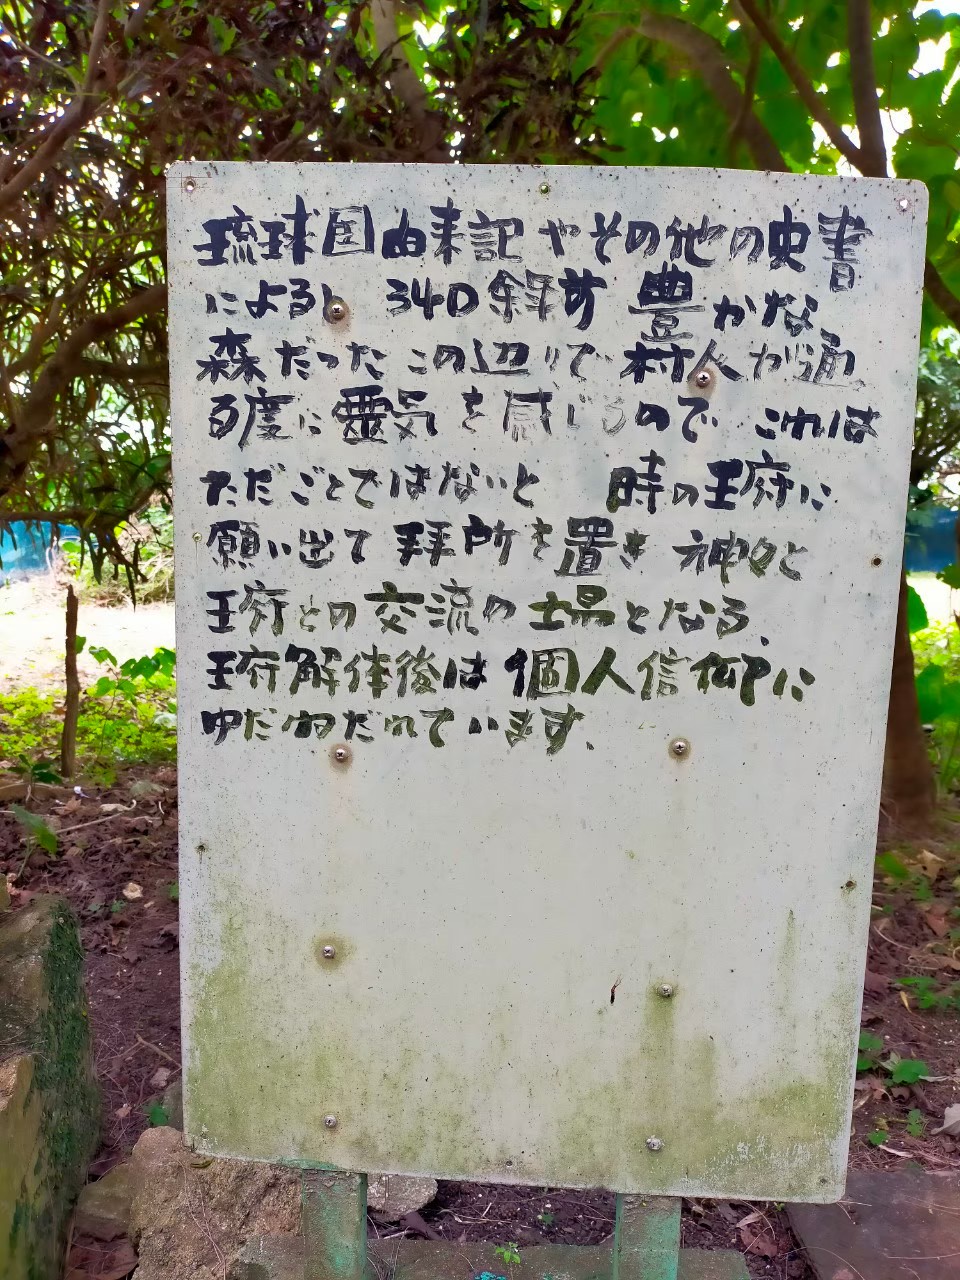 琉球国由来記やその他の史書
によると 340余年前 豊かな
森だった この辺りで 村人が通
る度に霊気を感じるので これは
ただごとではないと 時の王府に
願い出て 拝所を置き 神々と
王府との交流の場となる、
王府解体後は個人信仰に
ゆだねられています、